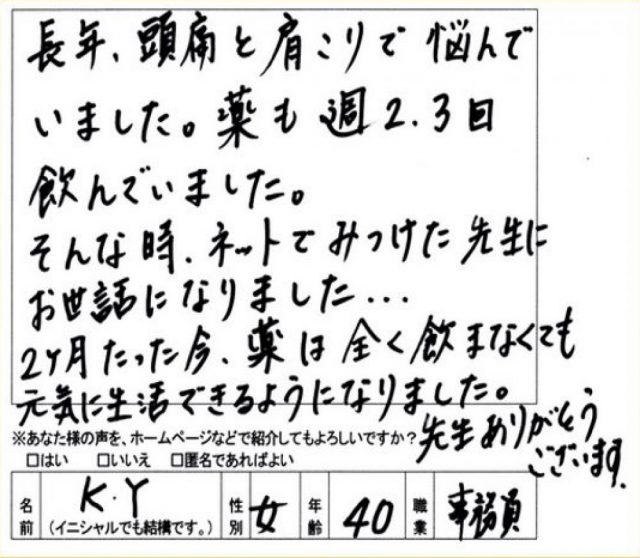 長年、頭痛と肩こりで悩んで
いました。薬も週2.3回
飲んでいました。
そんな時、ネットでみつけた先生に
お世話になりました...
2ヶ月たった今、薬は全く飲まなくても
元気に生活できるようになりました。
先生ありがとう
ございます.
※あなた様の声を、ホームページなどで紹介してもよろしいですか?
□はい □いいえ □匿名であればよい
名前 K.Y (イニシャルでも結構です。) 性別 女 年齢 40 職業 事務員